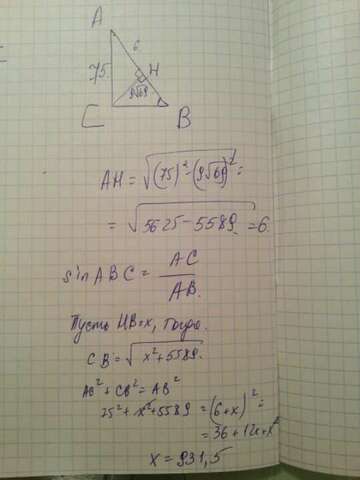 A
6
75
H
9√69
C
B
AH = √(75)² - (9√69)² =
= √5625 - 5589 = 6
sin ABC = AC / AB.
Пусть HB = x, тогда.
CB = √x² + 5589.
AC² + CB² = AB²
75² + x² + 5589 = (6+x)² =
= 36 + 12x + x²
x = 931,5